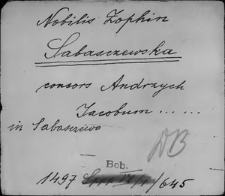 Nobilis Zophin
Sabaszewska
consors Andrzych
Jacobum ......
in Sabaszewo
AB
Bob.
1497 /645